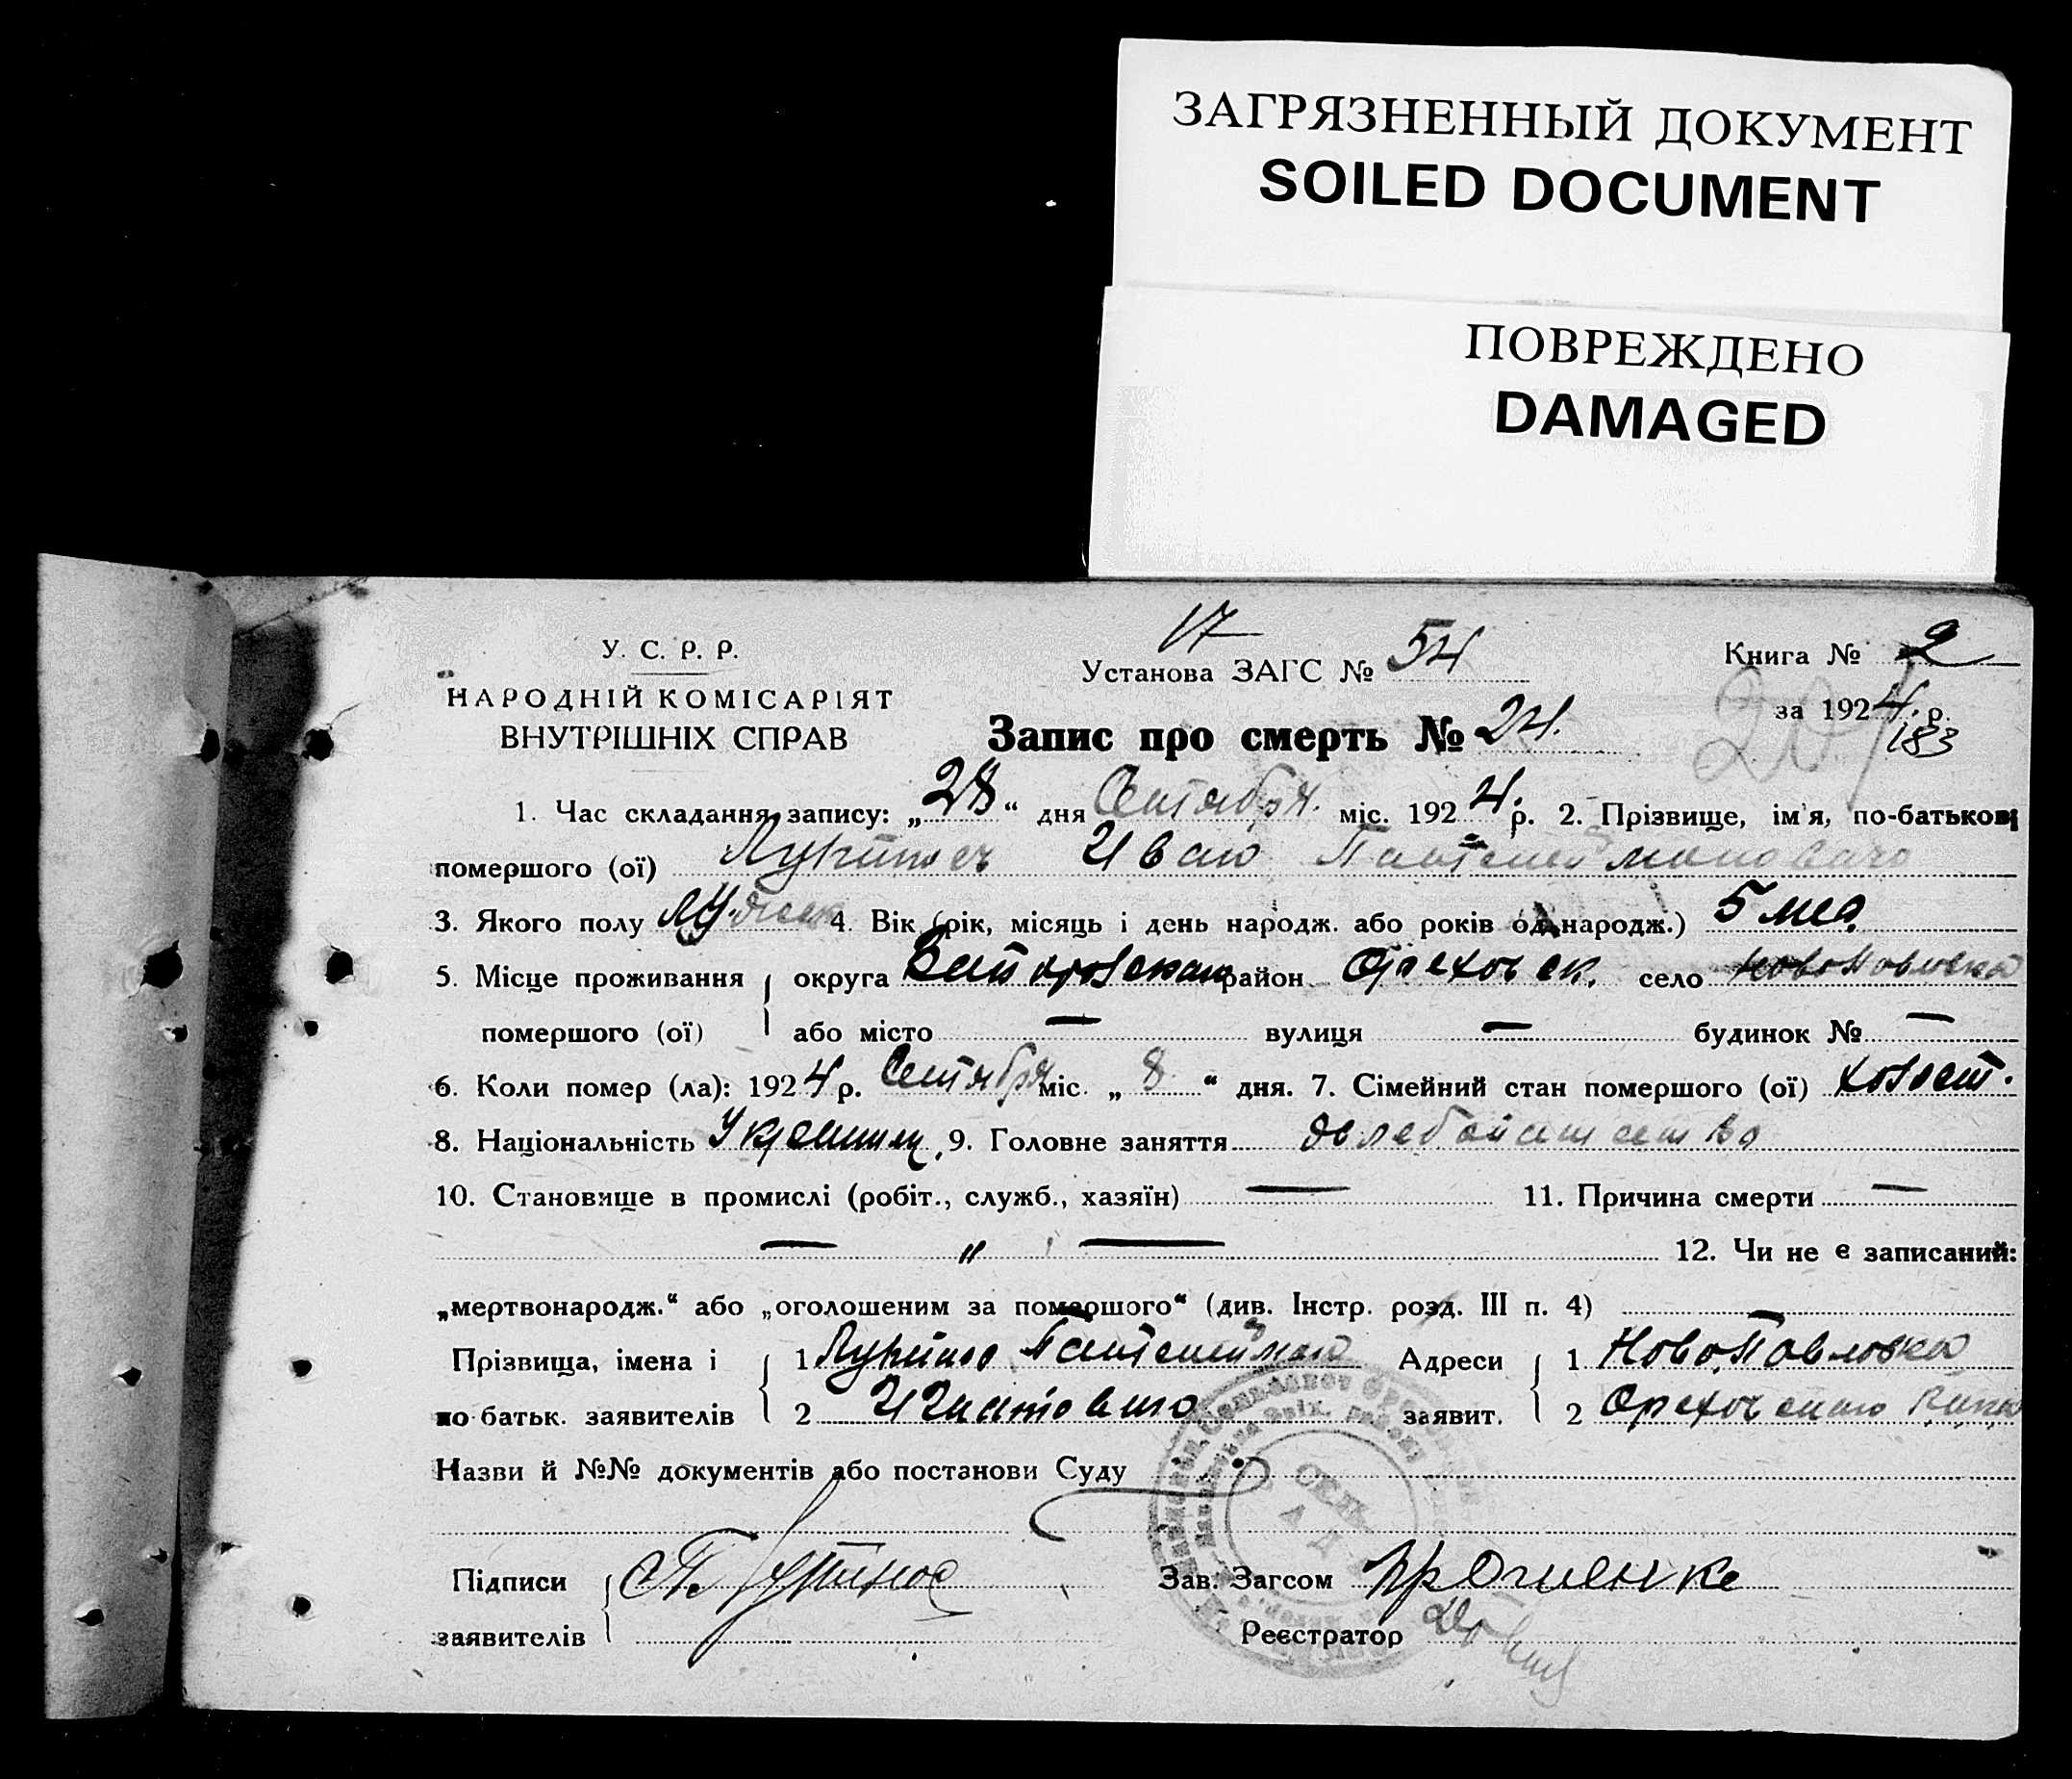 ЗАГРЯЗНЕННЫЙ ДОКУМЕНТ
SOILED DOCUMENT
ПОВРЕЖДЕНО
DAMAGED
17
У. С. Р. Р.
НАРОДНІЙ КОМІСАРІЯТ
ВНУТРІШНІХ СПРАВ
Установа ЗАГС № 54
Книга № 2
за 1924 р.
183
Запис про смерть № 24.
1. Час складання запису: „28“ дня Сентября міс. 1924 р. 2. Прізвище, ім'я, по-батькові
помершого (ої) Иван
3. Якого полу 4. Вік (рік, місяць і день народж. або років од народж.) 5 мес.
5. Місце проживання округа район Ореховск. село НовоПавловка
помершого (ої) або місто — вулиця — будинок № —
6. Коли помер (ла): 1924 р. Сентября міс. „8“ дня. 7. Сімейний стан помершого (ої) холост.
8. Національність 9. Головне заняття
10. Становище в промислі (робіт., служб., хазяїн) — 11. Причина смерти —
— „ — 12. Чи не є записаний:
„мертвонародж.“ або „оголошеним за помершого“ (див. Інстр. розд. III п. 4) —
Прізвища, імена і 1 Адреси 1 НовоПавловка
по батьк. заявителів 2 Игнатович заявит. 2
Назви й №№ документів або постанови Суду
Підписи Зав. Загсом
заявителів Реєстратор